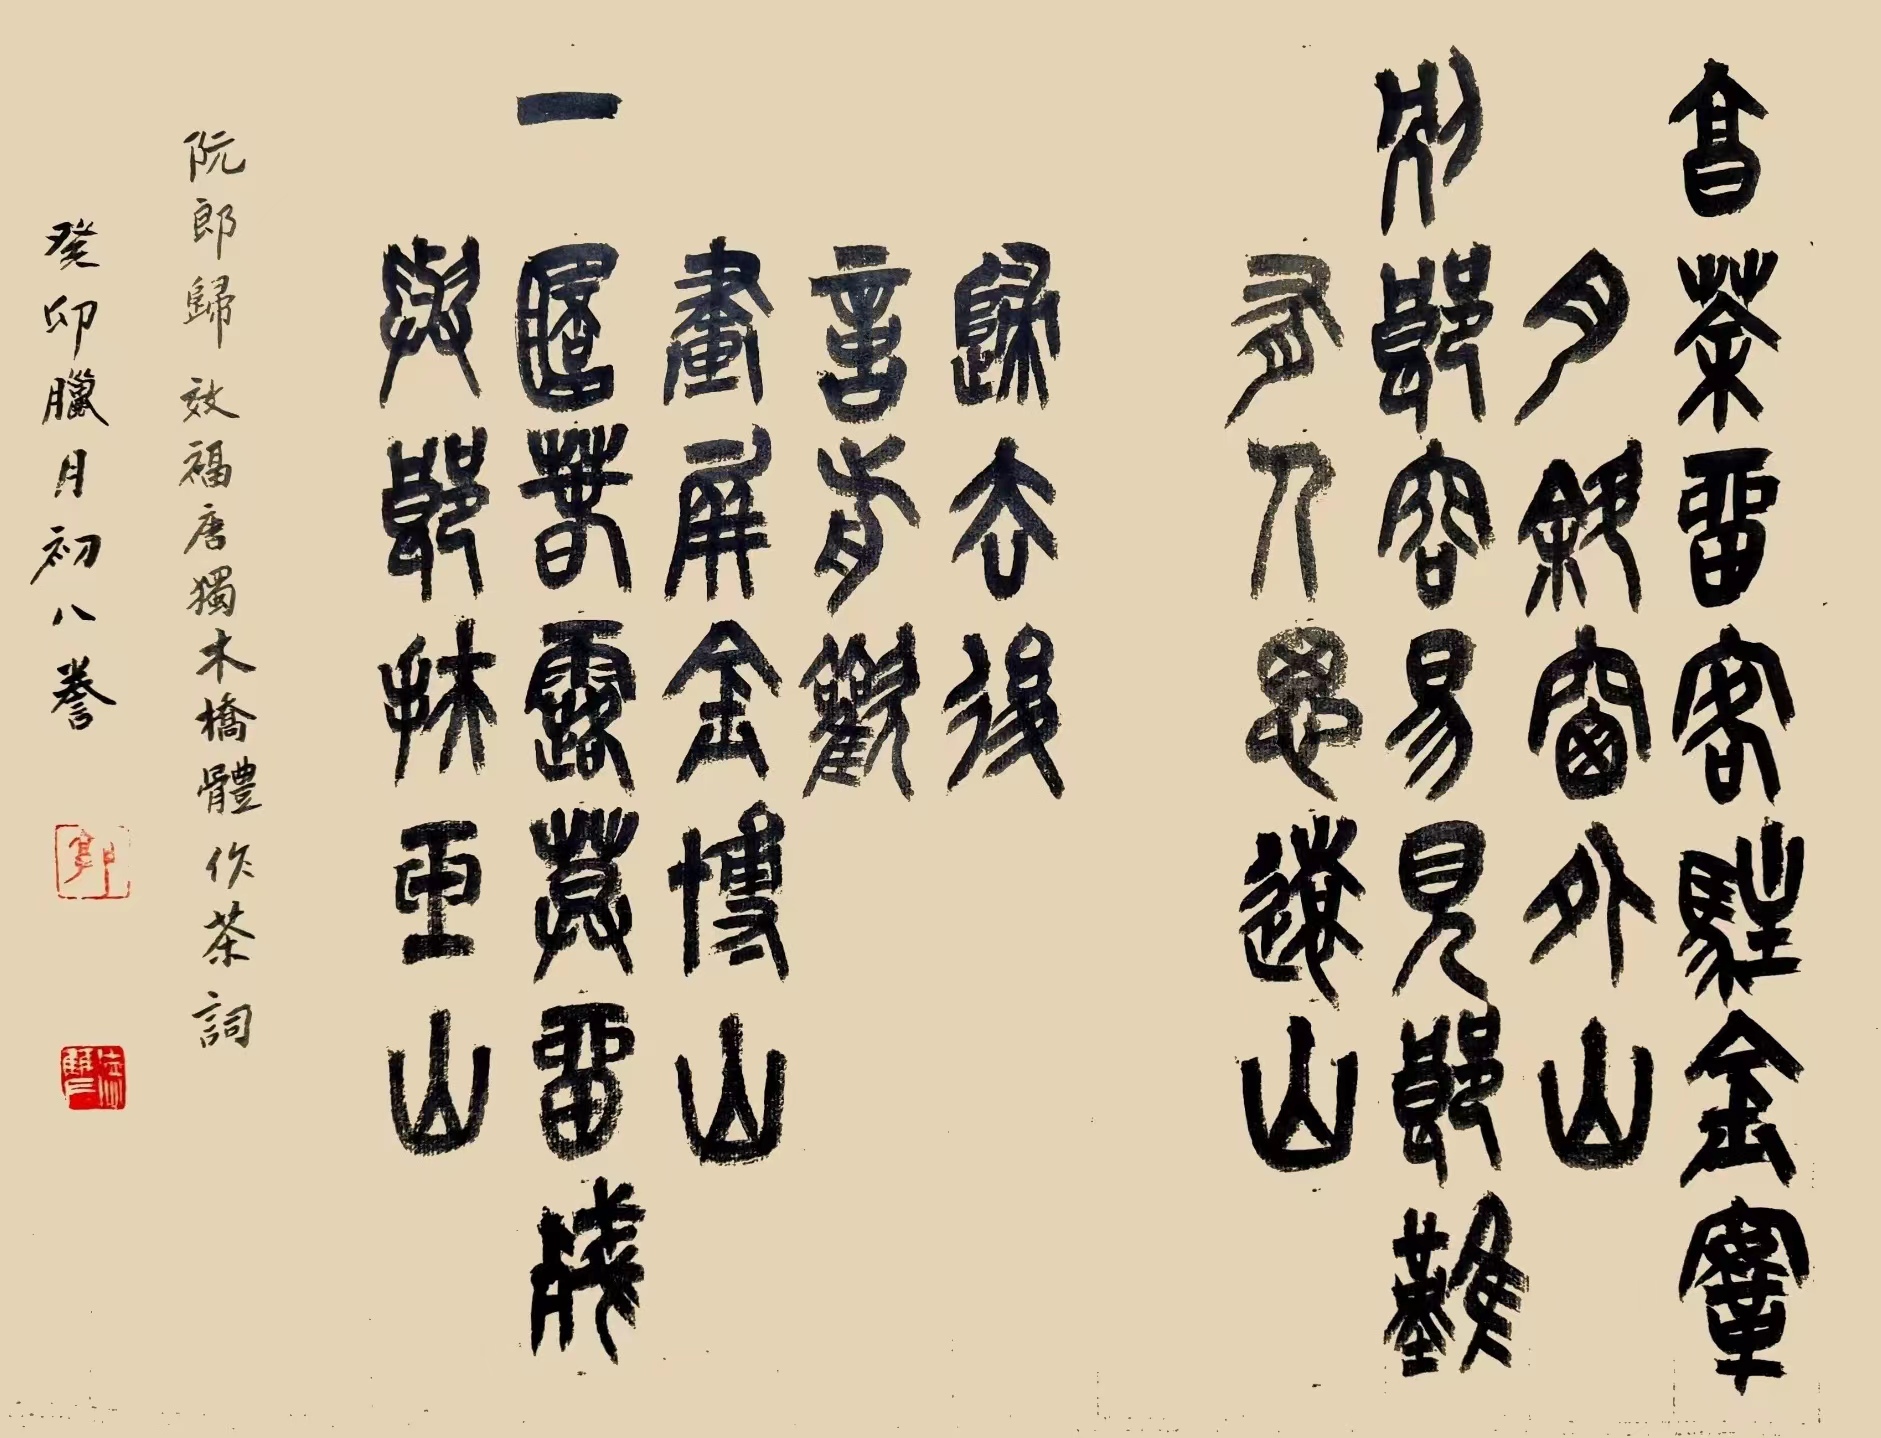 烹茶留客駐金鞍
月斜窗外山
別郎容易見郎難
有人思遠山
歸去後
憶前歡
畫屏金博山
一杯春露莫留殘
與郎扶玉山
阮郎歸 效福唐獨木橋體作茶詞
癸卯臘月初八 誊